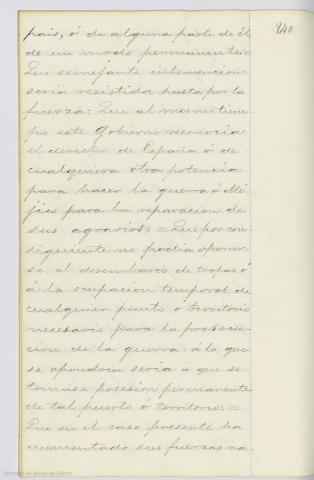 940
pais, ó de alguna parte de él,
de un modo permanente. =
Que semejante intervencion
seria resistida hasta por la
fuerza: Que al mismo tiem-
po este Gobierno reconocia
el derecho de España ó de
cualquiera otra potencia
para hacer la guerra á Mé-
jico para la reparacion de
sus agravios: = Que por con-
siguiente no podia oponer-
se al desembarco de tropas ó
á la ocupacion temporal de
cualquier punto ó territorio
necesario para la prosecu-
cion de la guerra: á lo que
se opondria seria á que se
tomase posesion permanente
de tal puerto ó territorio: =
Que en el caso presente ha
aumentado sus fuerzas na-